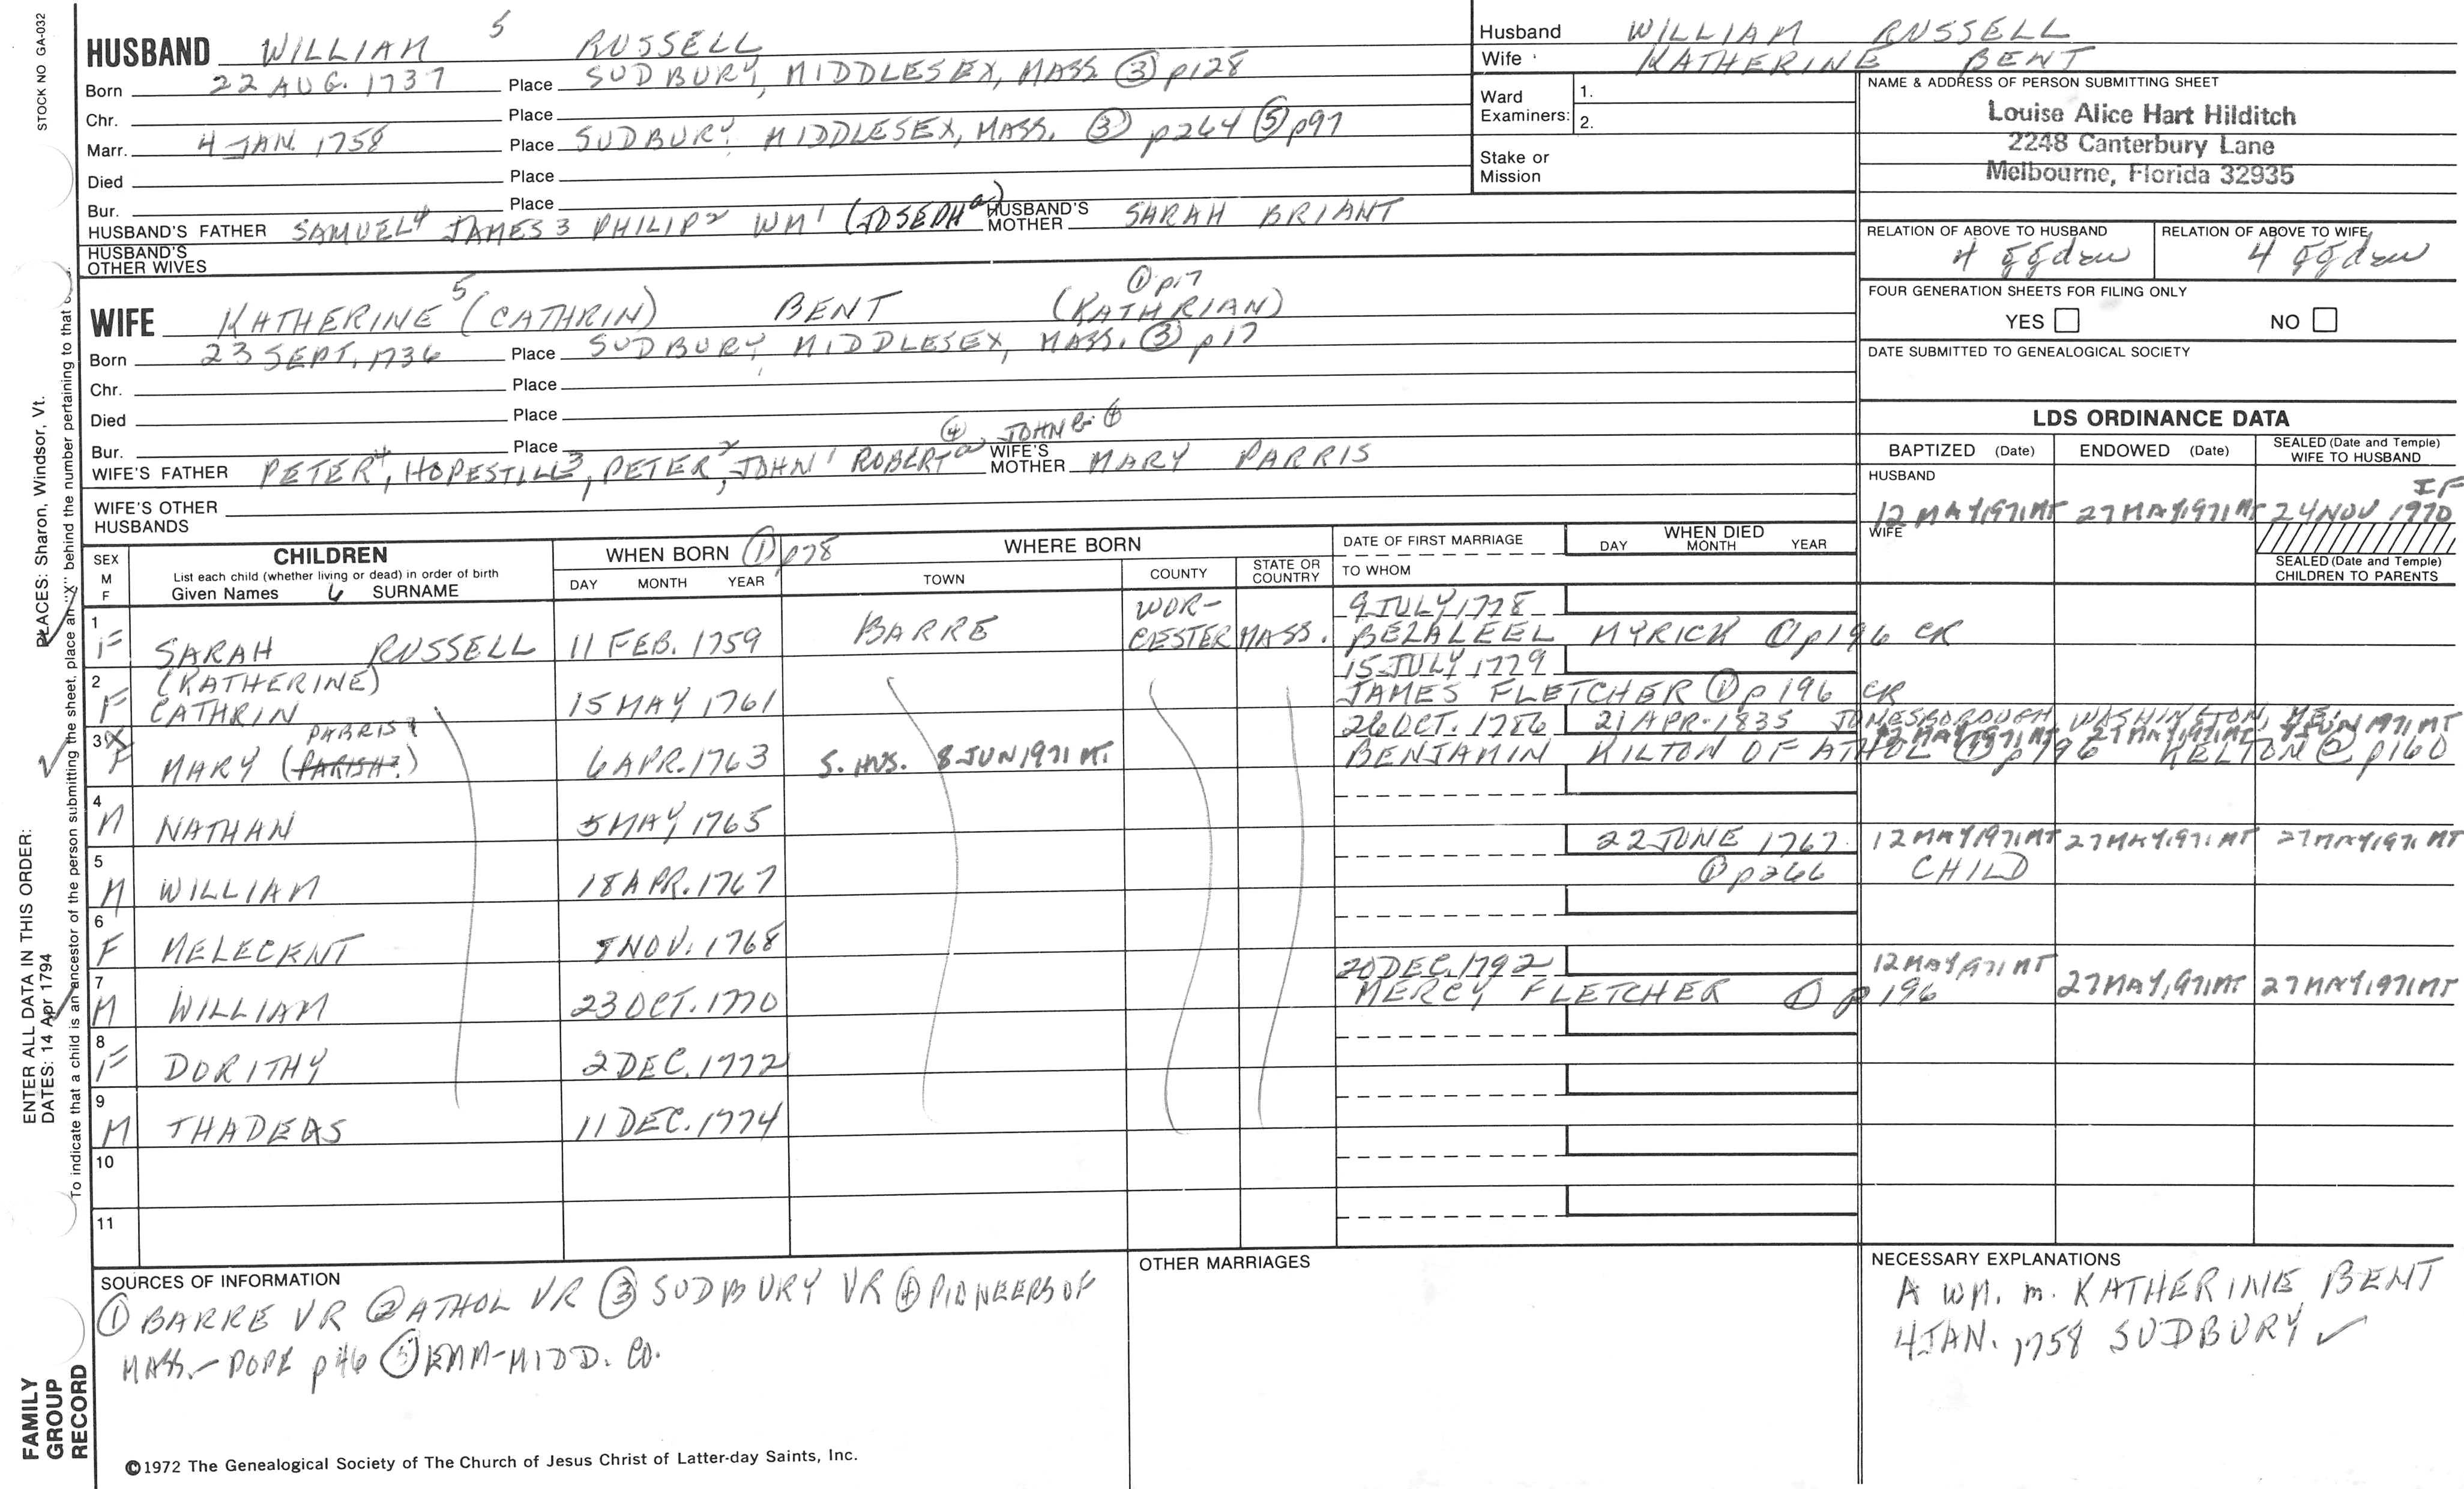 STOCK NO GA-032
HUSBAND WILLIAM 5 RUSSELL
Born 22 AUG. 1737 Place SUDBURY, MIDDLESEX, MASS ③ p128
Chr. Place
Marr. 4 JAN. 1758 Place SUDBURY, MIDDLESEX, MASS. ③ p264 ⑤ p97
Died Place
Bur. Place
HUSBAND'S FATHER SAMUEL4 JAMES3 PHILIP2 WM1 (JOSEPHa) HUSBAND'S MOTHER SARAH BRIANT
HUSBAND'S OTHER WIVES
① p17
WIFE KATHERINE5 (CATHRIN) BENT (KATHRIAN)
Born 23 SEPT. 1736 Place SUDBURY, MIDDLESEX, MASS. ③ p17
Chr. Place
Died Place
Bur. Place
WIFE'S FATHER PETER4, HOPESTILL3, PETER2, JOHN1 ROBERTa ④, JOHN ④ WIFE'S MOTHER MARY PARRIS
WIFE'S OTHER HUSBANDS
Husband WILLIAM RUSSELL
Wife KATHERINE BENT
Ward Examiners: 1.
2.
Stake or Mission
NAME & ADDRESS OF PERSON SUBMITTING SHEET
Louise Alice Hart Hilditch
2248 Canterbury Lane
Melbourne, Florida 32935
RELATION OF ABOVE TO HUSBAND RELATION OF ABOVE TO WIFE
4 ggdau 4 ggdau
FOUR GENERATION SHEETS FOR FILING ONLY
YES NO
DATE SUBMITTED TO GENEALOGICAL SOCIETY
LDS ORDINANCE DATA
BAPTIZED (Date) ENDOWED (Date) SEALED (Date and Temple) WIFE TO HUSBAND
HUSBAND
IF
12 MAY 1971 MT 27 MAY 1971 MT 24 NOV 1970
WIFE
SEALED (Date and Temple) CHILDREN TO PARENTS
SEX M F
CHILDREN
List each child (whether living or dead) in order of birth
Given Names 6 SURNAME
WHEN BORN ① p78
DAY MONTH YEAR
WHERE BORN
TOWN COUNTY STATE OR COUNTRY
DATE OF FIRST MARRIAGE
TO WHOM
WHEN DIED
DAY MONTH YEAR
1 F SARAH RUSSELL 11 FEB. 1759 BARRE WORCESTER MASS. 9 JULY 1778
BEZALEEL MYRICK ① p196 CR
2 F (KATHERINE) CATHRIN 15 MAY 1761 15 JULY 1779
JAMES FLETCHER ① p196 CR
3 X F MARY (PARISH?) PARRIS? 6 APR. 1763 S. HUS. 8 JUN 1971 MT. 26 OCT. 1786 21 APR. 1835 JONESBOROUGH, WASHINGTON, ME.
12 MAY 1971 MT 27 MAY 1971 MT 9 JUN 1971 MT
BENJAMIN KILTON OF ATHOL ① p196 KELTON ② p160
4 M NATHAN 5 MAY 1765
5 M WILLIAM 18 APR. 1767 22 JUNE 1767 ① p266 12 MAY 1971 MT 27 MAY 1971 MT 27 MAY 1971 MT
CHILD
6 F MELECENT 7 NOV. 1768
7 M WILLIAM 23 OCT. 1770 20 DEC. 1792 12 MAY 1971 MT 27 MAY 1971 MT 27 MAY 1971 MT
MERCY FLETCHER ① p196
8 F DORITHY 2 DEC. 1772
9 M THADEAS 11 DEC. 1774
10
11
SOURCES OF INFORMATION
① BARRE VR ② ATHOL VR ③ SUDBURY VR ④ PIONEERS OF
MASS. - POPE p46 ⑤ EMM-MIDD. CO.
OTHER MARRIAGES
NECESSARY EXPLANATIONS
A WM. m. KATHERINE BENT
4 JAN. 1758 SUDBURY ✓
©1972 The Genealogical Society of The Church of Jesus Christ of Latter-day Saints, Inc.
FAMILY GROUP RECORD
ENTER ALL DATA IN THIS ORDER:
DATES: 14 Apr 1794
PLACES: Sharon, Windsor, Vt.
To indicate that a child is an ancestor of the person submitting the sheet, place an "X" behind the number pertaining to that